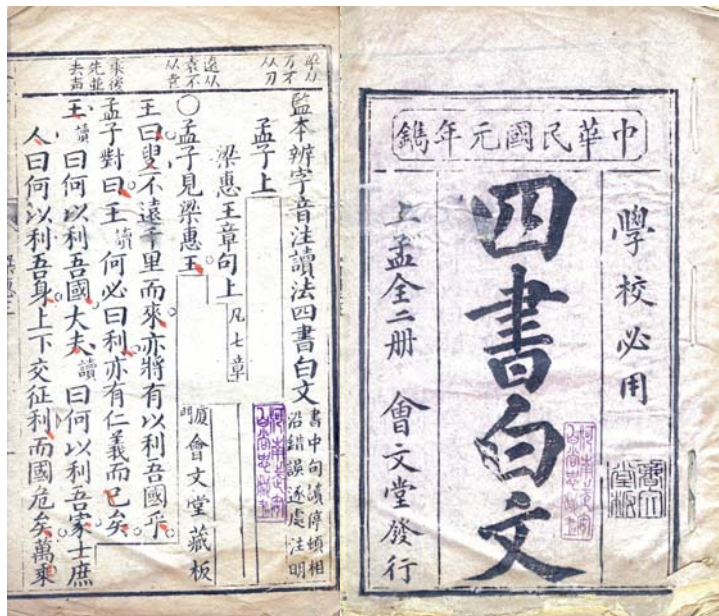 中華民國元年鐫
學校必用
四書白文
上孟全二册 會文堂發行
遠从
袁不
乘後
先並
去声
監本辨字音注讀法四書白文
書中句讀停頓相
沿錯誤逐處注明
孟子上
梁惠王章句上 凡七章
廈門會文堂藏板
○孟子見梁惠王
王曰叟不遠千里而來亦將有以利吾國乎
孟子對曰王讀何必曰利亦有仁義而已矣
王讀曰何以利吾國大夫讀曰何以利吾家士庶
人曰何以利吾身上下交征利而國危矣萬乘